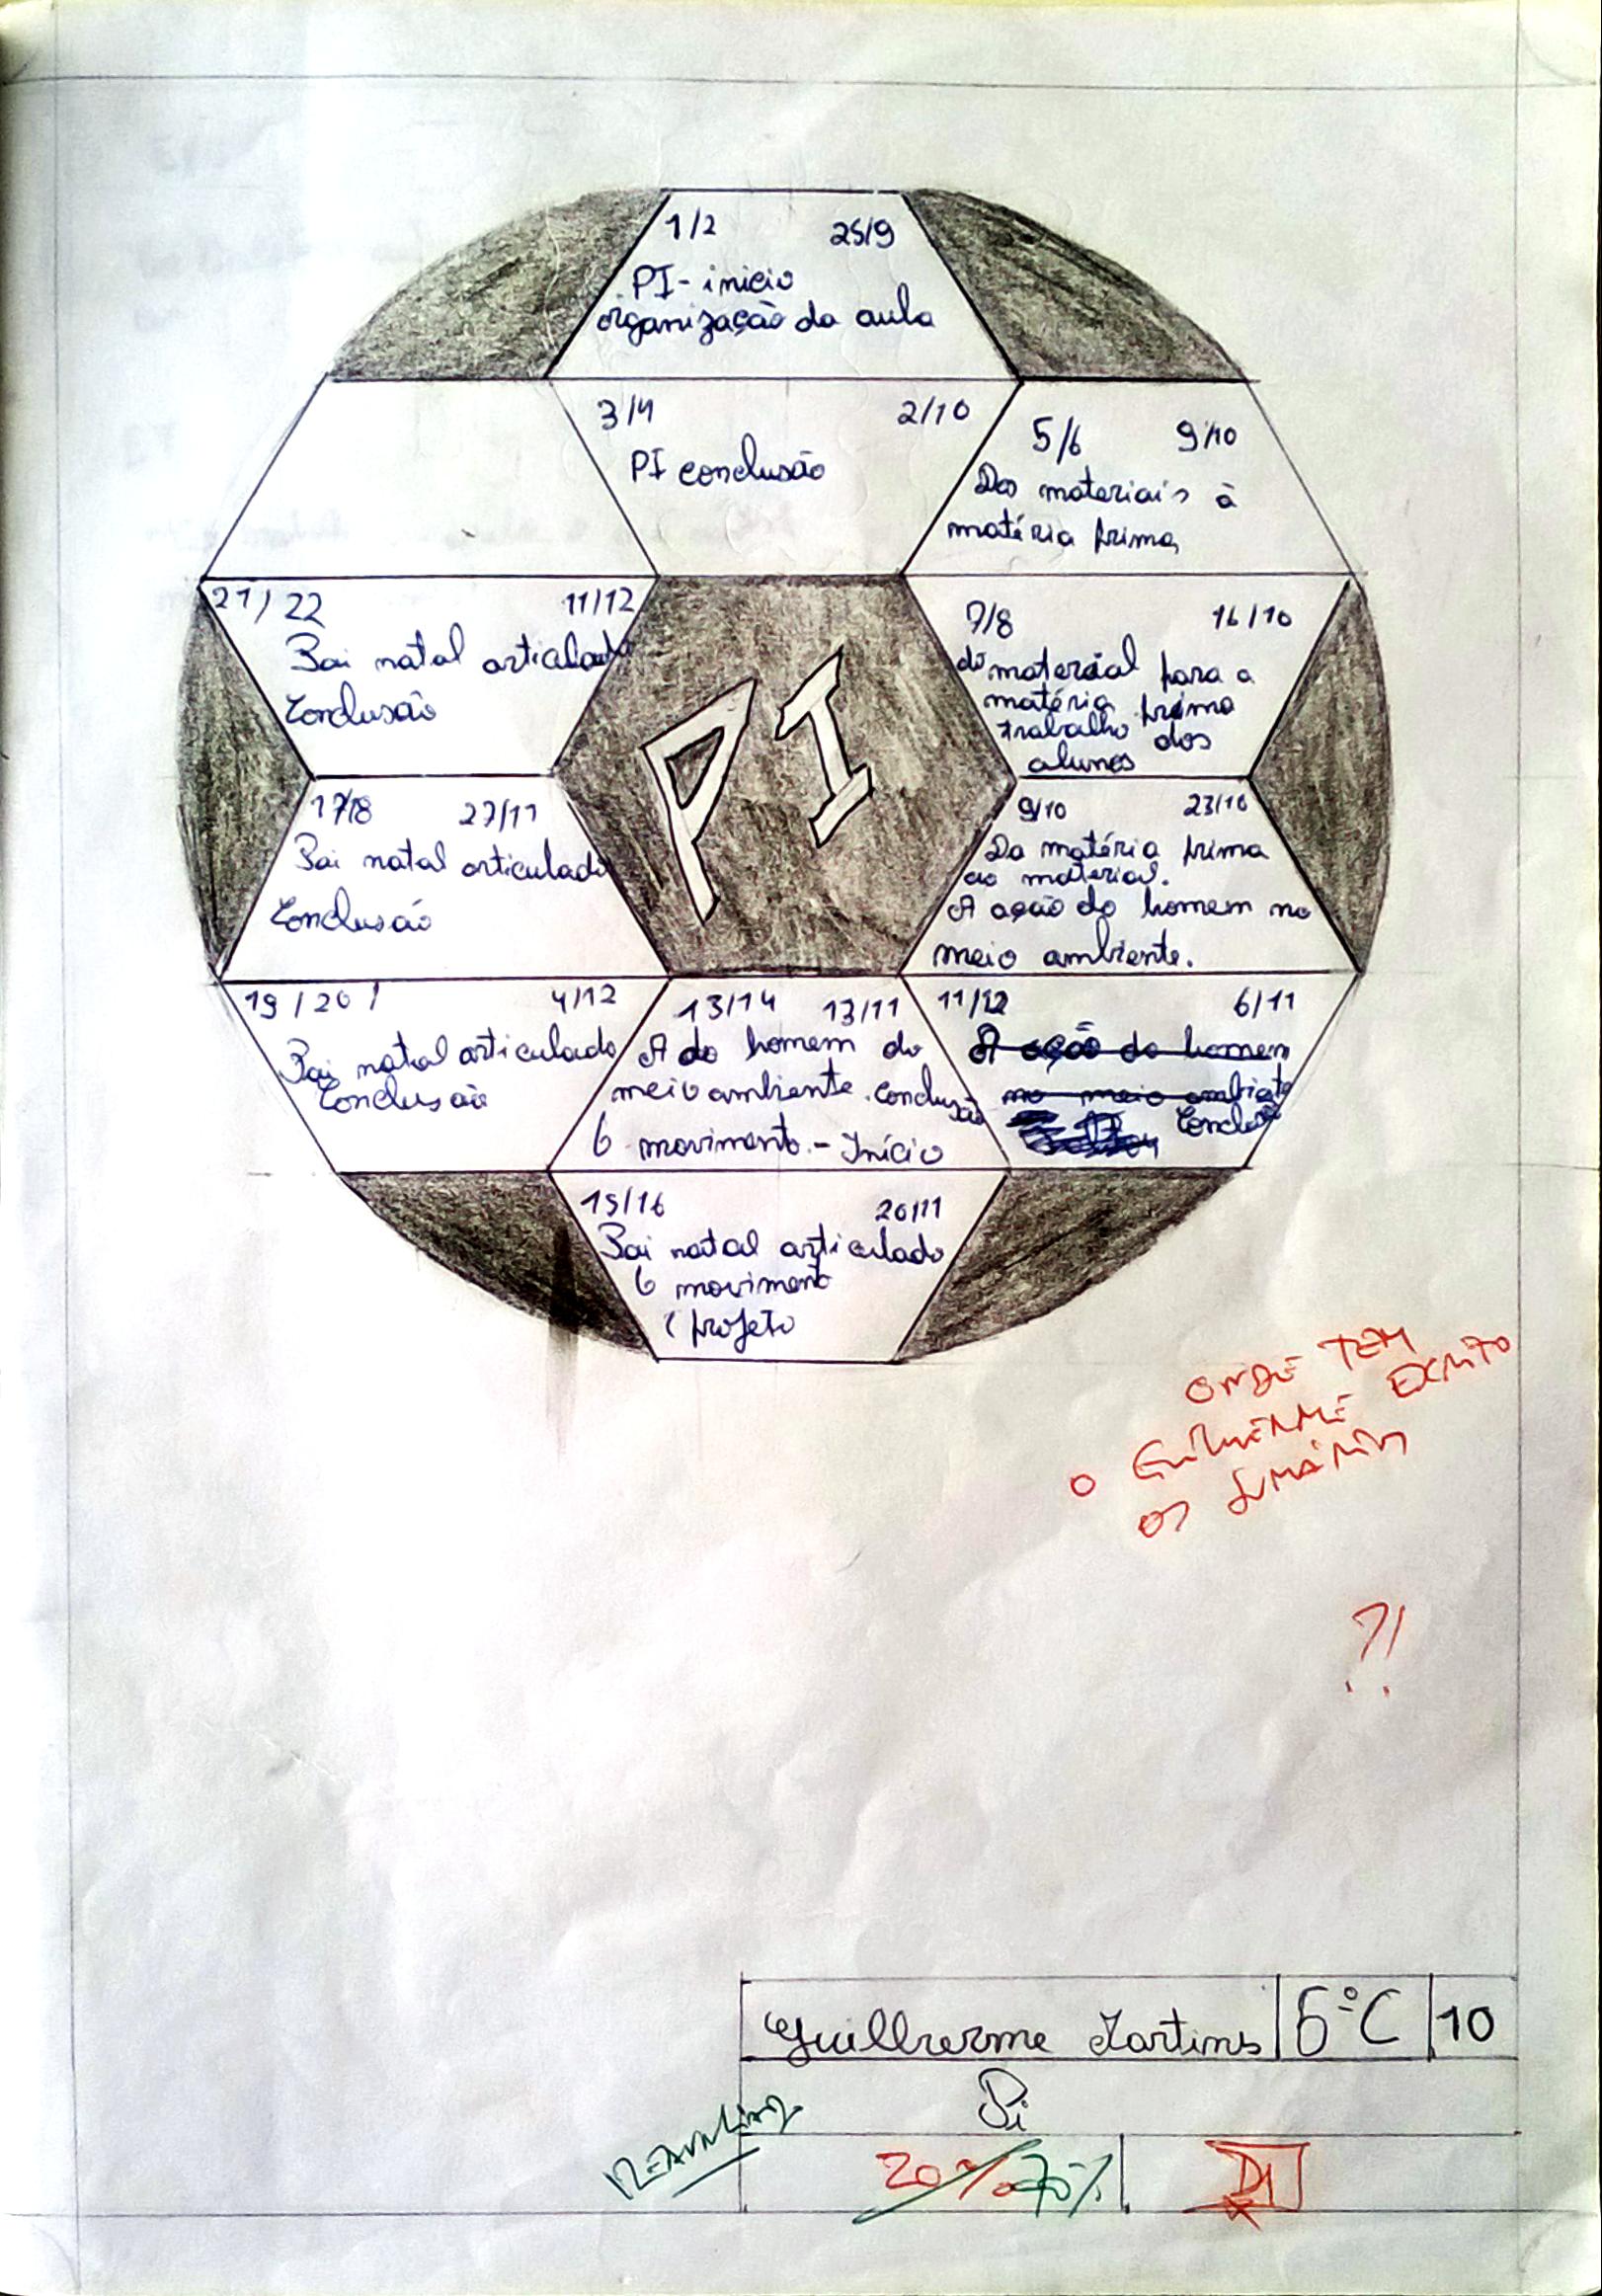 1/2 25/9
PI - inicio
organização da aula
3/4 2/10
PI conclusão
5/6 9/10
Dos materiais à
matéria prima
21/22 11/12
Pai natal articulado
Conclusão
PI
7/8 16/10
do material para a
matéria prima
trabalho dos
alunos
17/18 27/11
Pai natal articulado
Conclusão
9/10 23/10
Da matéria prima
ao material.
A ação do homem no
meio ambiente.
19/20/ 4/12
Pai natal articulado
Conclusão
13/14 13/11
A do homem do
meio ambiente. conclusão
6 movimento. - Início
11/12 6/11
A ação do homem
no meio ambiente
Conclusão
15/16 20/11
Pai natal articulado
6 movimento
( projeto
ONDE TEM
O GUILHERME ESCRITO
OS SUMÁRIOS
?!
Guilherme Martins 6ºC 10
Pi
REAVALIAR
20% 70% D1